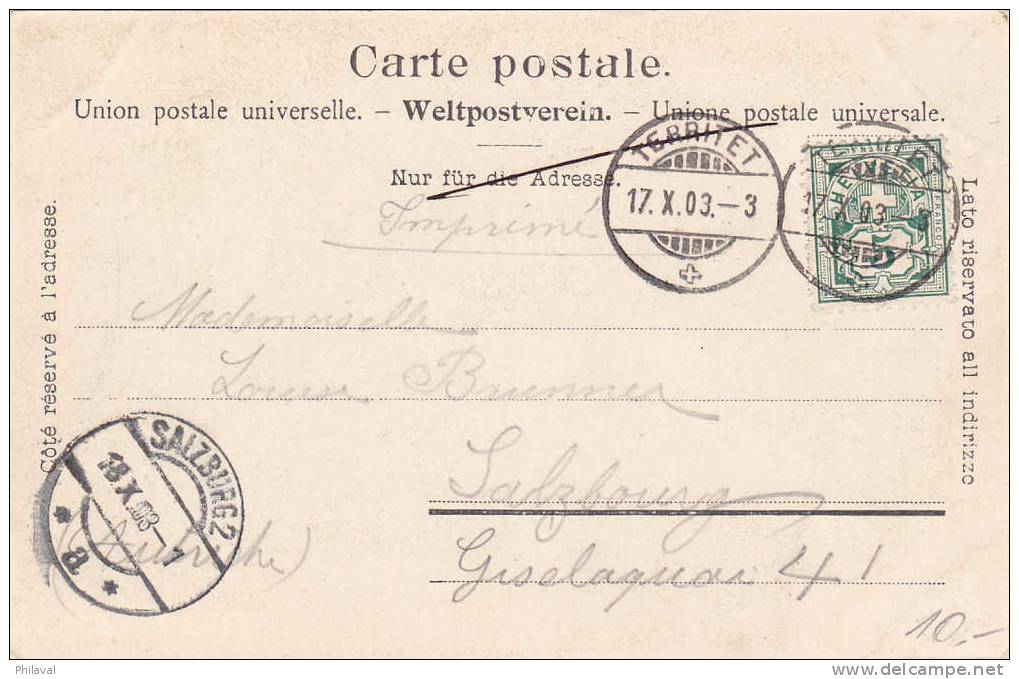 Carte postale.
Union postale universelle. – Weltpostverein. – Unione postale universale.
Nur für die Adresse.
Imprimé
TERRITET
17. X. 03. – 3
17. X. 03 – 3
FRANCO
HELVETIA
5
Côté réservé à l'adresse.
Lato riservato all indirizzo
Mademoiselle
Louise Brunner
Salzbourg
Giselaquai 41
(Autriche)
SALZBURG 2
18. X. 03 – 1
* a *
10.-
Philaval
delcampe.net